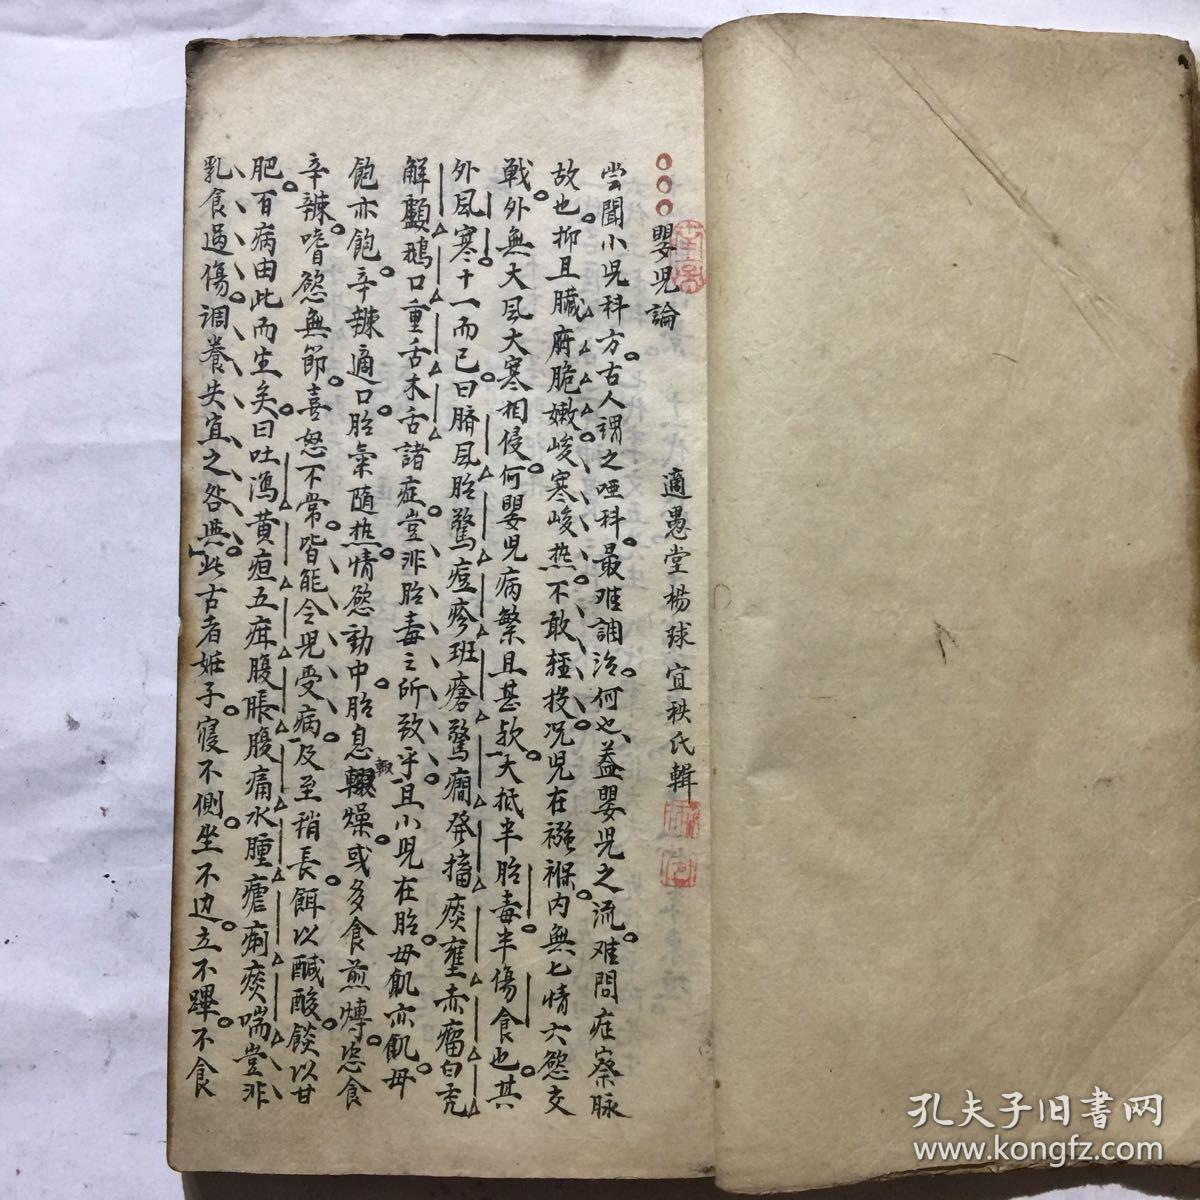 嬰児論
適愚堂楊球宜秩氏輯
嘗聞小児科方古人謂之啞科最难調治何也葢嬰児之流难問症察脉
故也抑且臟腑脆嫩峻寒峻热不敢轻投况児在襁褓内無七情六慾交
戦外無大風大寒相侵何嬰児病繁且甚欤大抵半胎毒半傷食也其
外風寒十一而已曰臍風胎驚痘疹班瘡驚癇發搐痰壅赤瘤白秃
解顱鵝口重舌木舌諸症豈非胎毒之所致乎且小児在胎母飢亦飢母
飽亦飽辛辣適口胎氣随热情慾動中胎息輙燥或多食煎煿恣食
辛辣嗜慾無節喜怒不常皆能令児受病及至稍長餌以鹹酸餤以甘
肥百病由此而生矣曰吐瀉黄疸五疳腹脹腹痛水腫瘧痢痰喘豈非
乳食過傷調養失宜之咎與此古者妊子寝不側坐不边立不蹕不食
孔夫子旧书网
www.kongfz.com